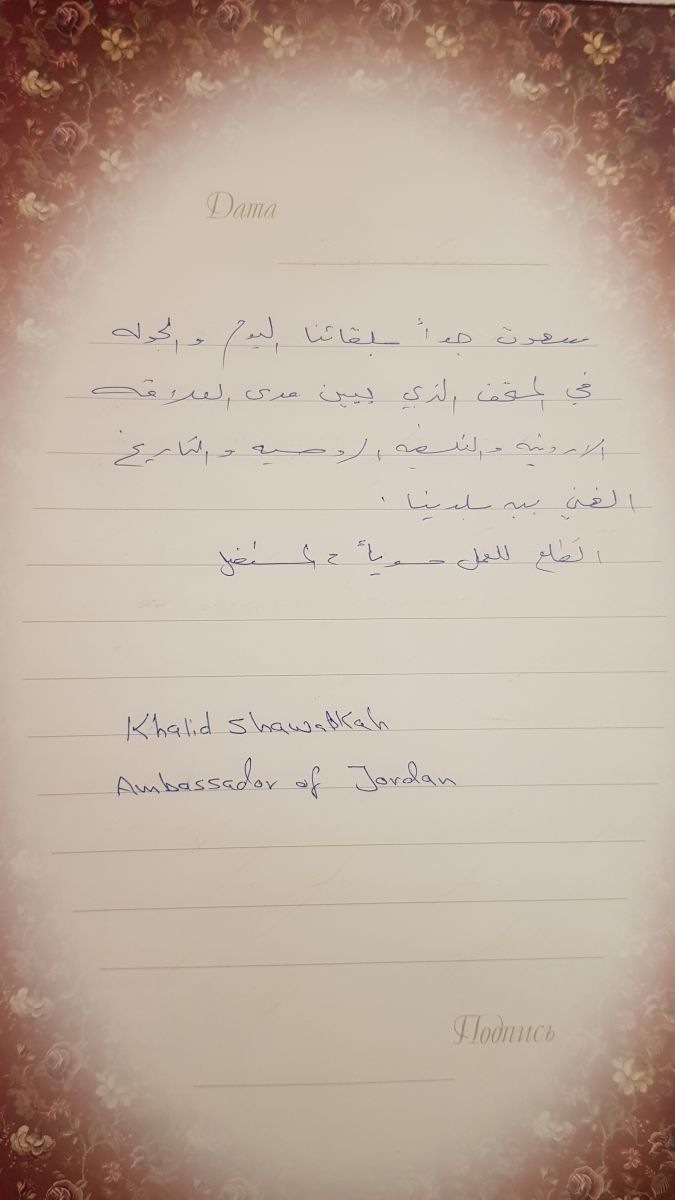 Дата
سعدت جداً بلقائنا اليوم والجوله
في المتحف الذي يبين مدى العلاقه
الاردنيه والفلسفيه الروسيه والتاريخ
الغني بين بلدينا .
اتطلع للعمل سوياً في المستقبل
Khalid Shawabkah
Ambassador of Jordan
Подпись